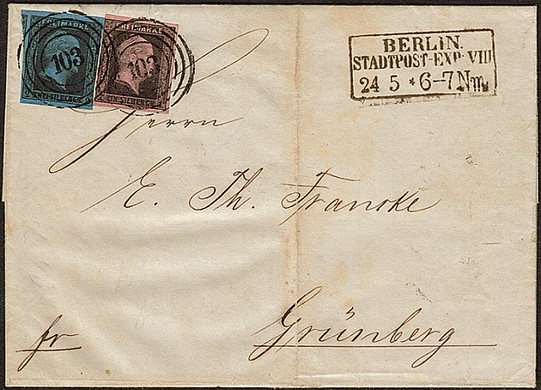 FREIMARKE FREIMARKE
103 103
ZWEI SILBERGR.
BERLIN.
STADTPOST-EXP. VIII
24 5 * 6-7 Nm.
Herrn
E. Th. Francke
Grünberg
fr